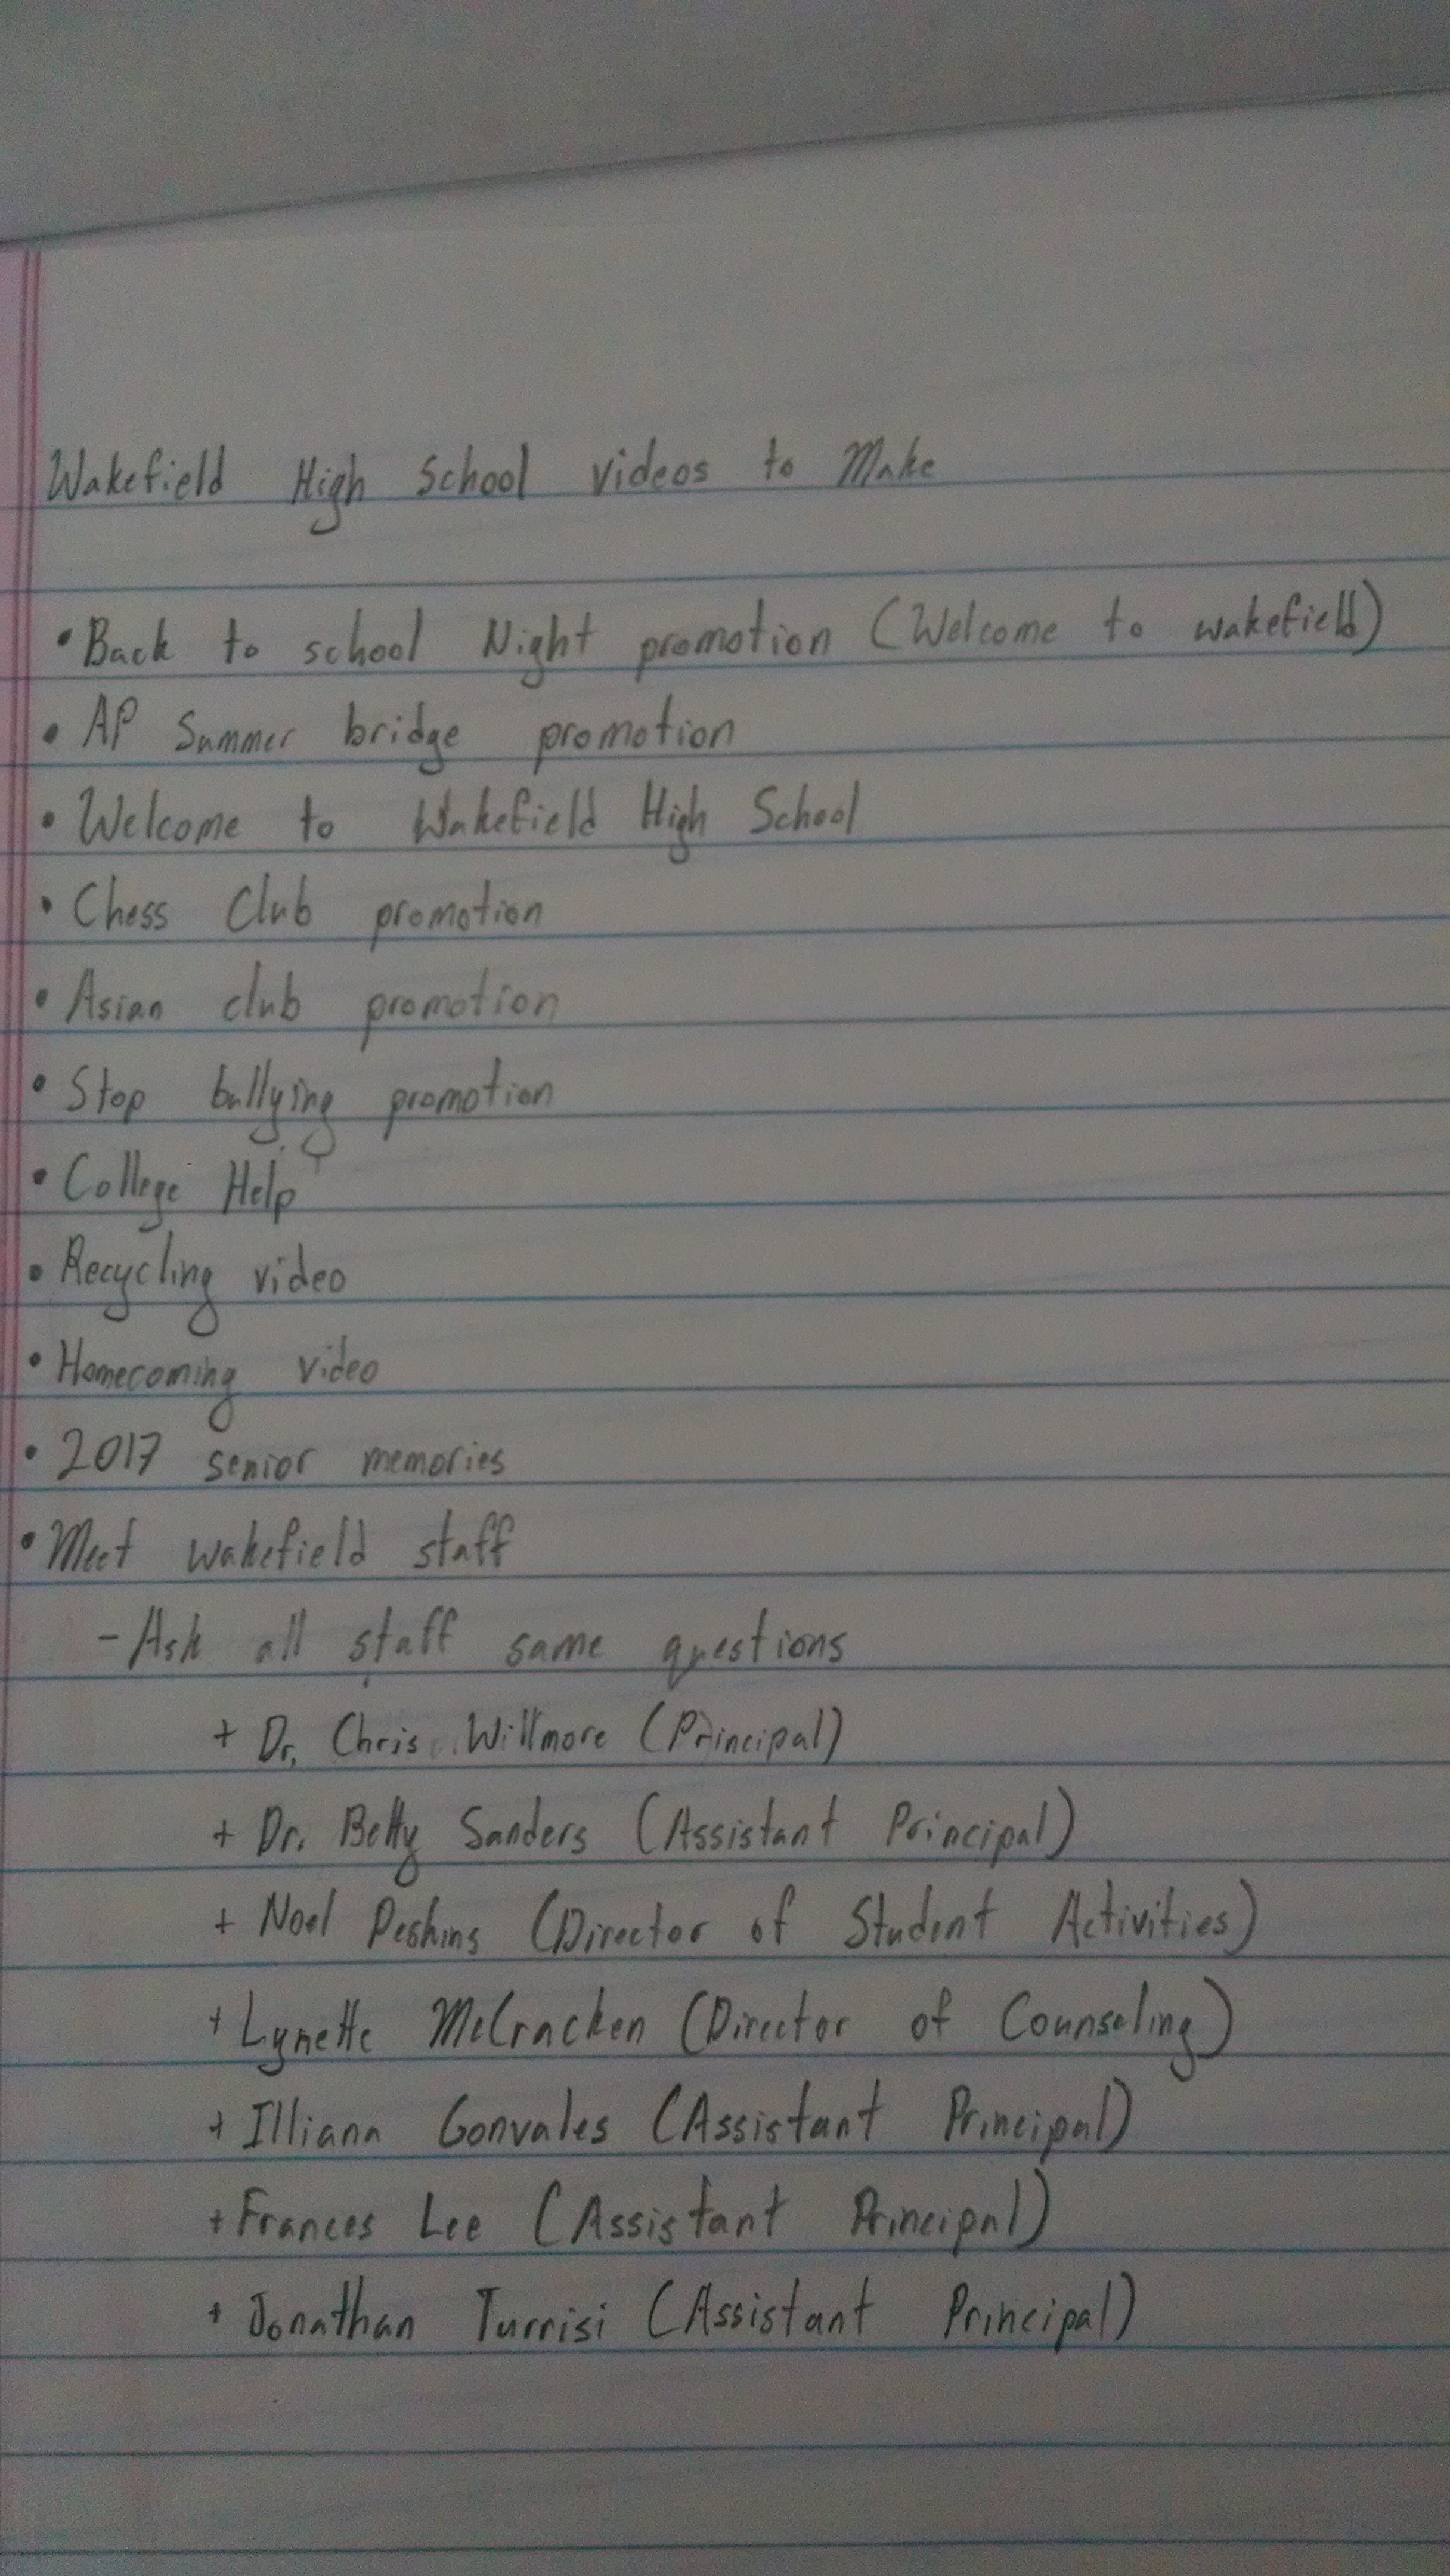 Wakefield High School videos to Make
• Back to school Night promotion (Welcome to wakefield)
• AP Summer bridge promotion
• Welcome to Wakefield High School
• Chess Club promotion
• Asian club promotion
• Stop bullying promotion
• College Help
• Recycling video
• Homecoming video
• 2017 senior memories
• Meet wakefield staff
- Ask all staff same questions
+ Dr. Chris Willmore (Principal)
+ Dr. Betty Sanders (Assistant Principal)
+ Noel Deskins (Director of Student Activities)
+ Lynette McCracken (Director of Counseling)
+ Illiana Gonvales (Assistant Principal)
+ Frances Lee (Assistant Principal)
+ Jonathan Turrisi (Assistant Principal)